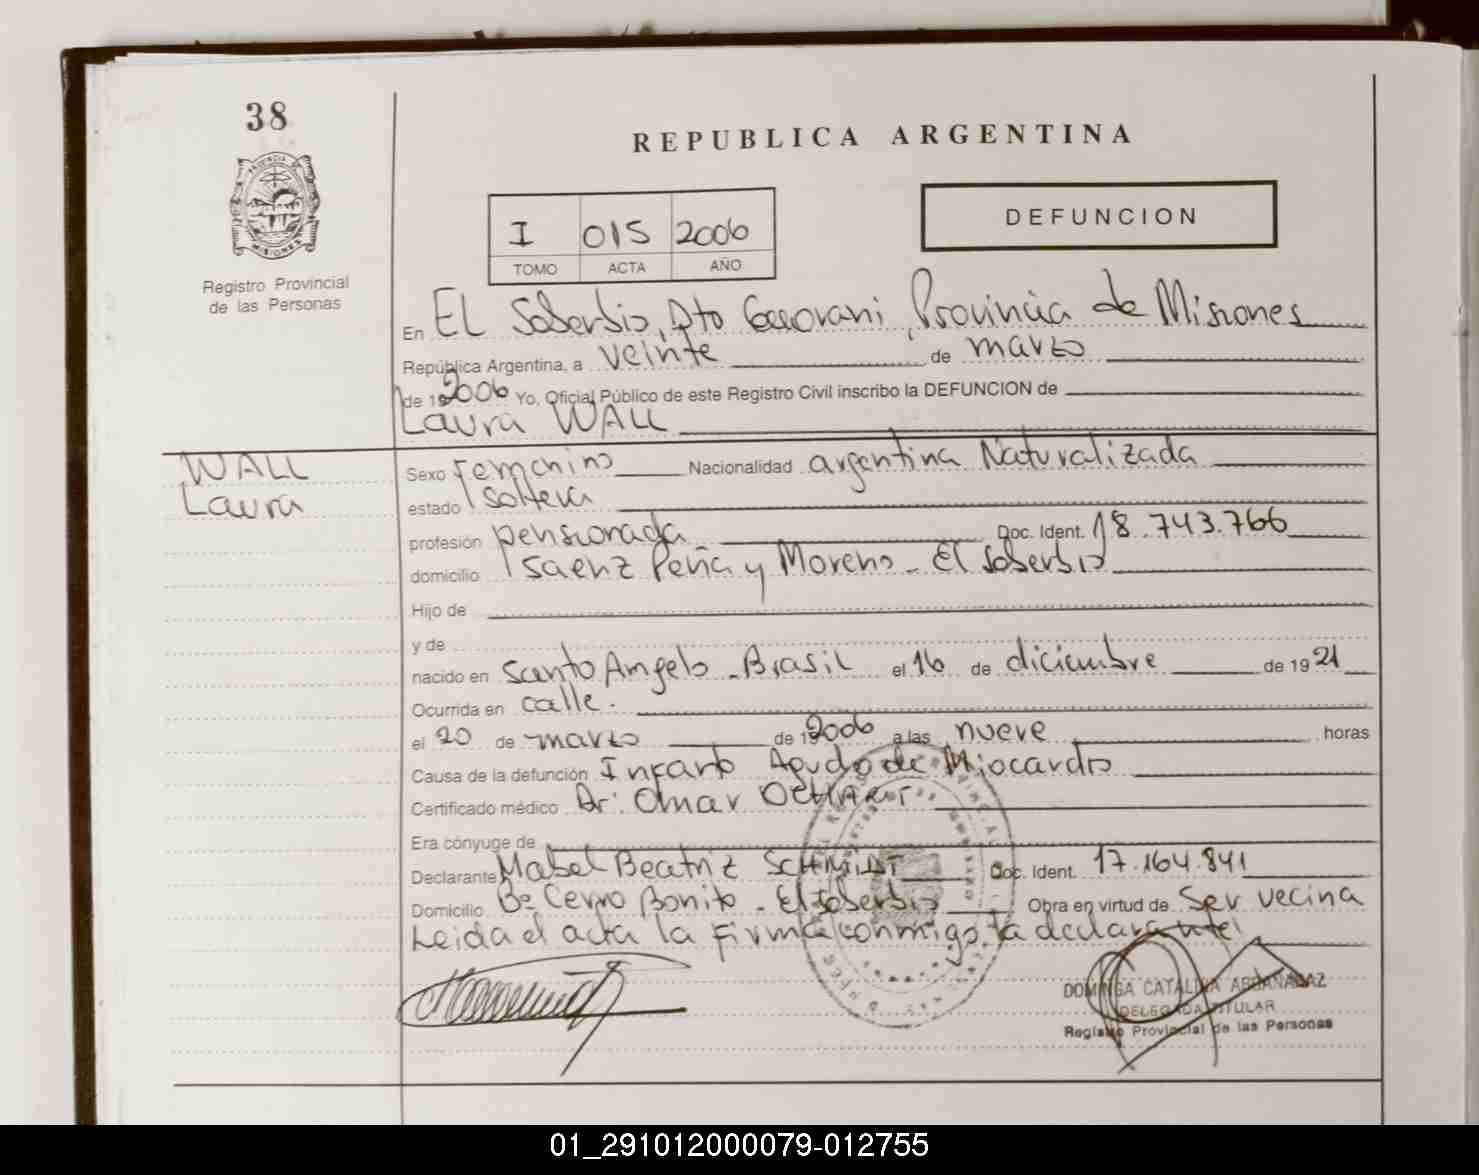 38
REPUBLICA ARGENTINA
I 015 2006
TOMO ACTA AÑO
DEFUNCION
Registro Provincial
de las Personas
En El Soberbio, Dto Guarani, Provincia de Misiones
República Argentina, a veinte de marzo
de 19 2006 Yo, Oficial Público de este Registro Civil inscribo la DEFUNCION de
Laura WALL
WALL
Laura
Sexo Femenino Nacionalidad argentina Naturalizada
estado soltera
profesión pensionada Doc. Ident. 18.743.766
domicilio Saenz Peña y Moreno - El Soberbio
Hijo de
y de
nacido en Santo Angelo - Brasil el 16 de diciembre de 19 21
Ocurrida en calle.
el 20 de marzo de 19 2006 a las nueve horas
Causa de la defunción Infarto Agudo de Miocardio
Certificado médico Dr. Omar
Era cónyuge de
Declarante Mabel Beatriz SCHMIDT Doc. Ident. 17.164.841
Domicilio Bº Cerro Bonito - El Soberbio Obra en virtud de Ser vecina
Leida el acta la firma conmigo, la declarante
DOMINGA CATALINA ARDANABAZ
DELEGADA TITULAR
Registro Provincial de las Personas
01_291012000079-012755